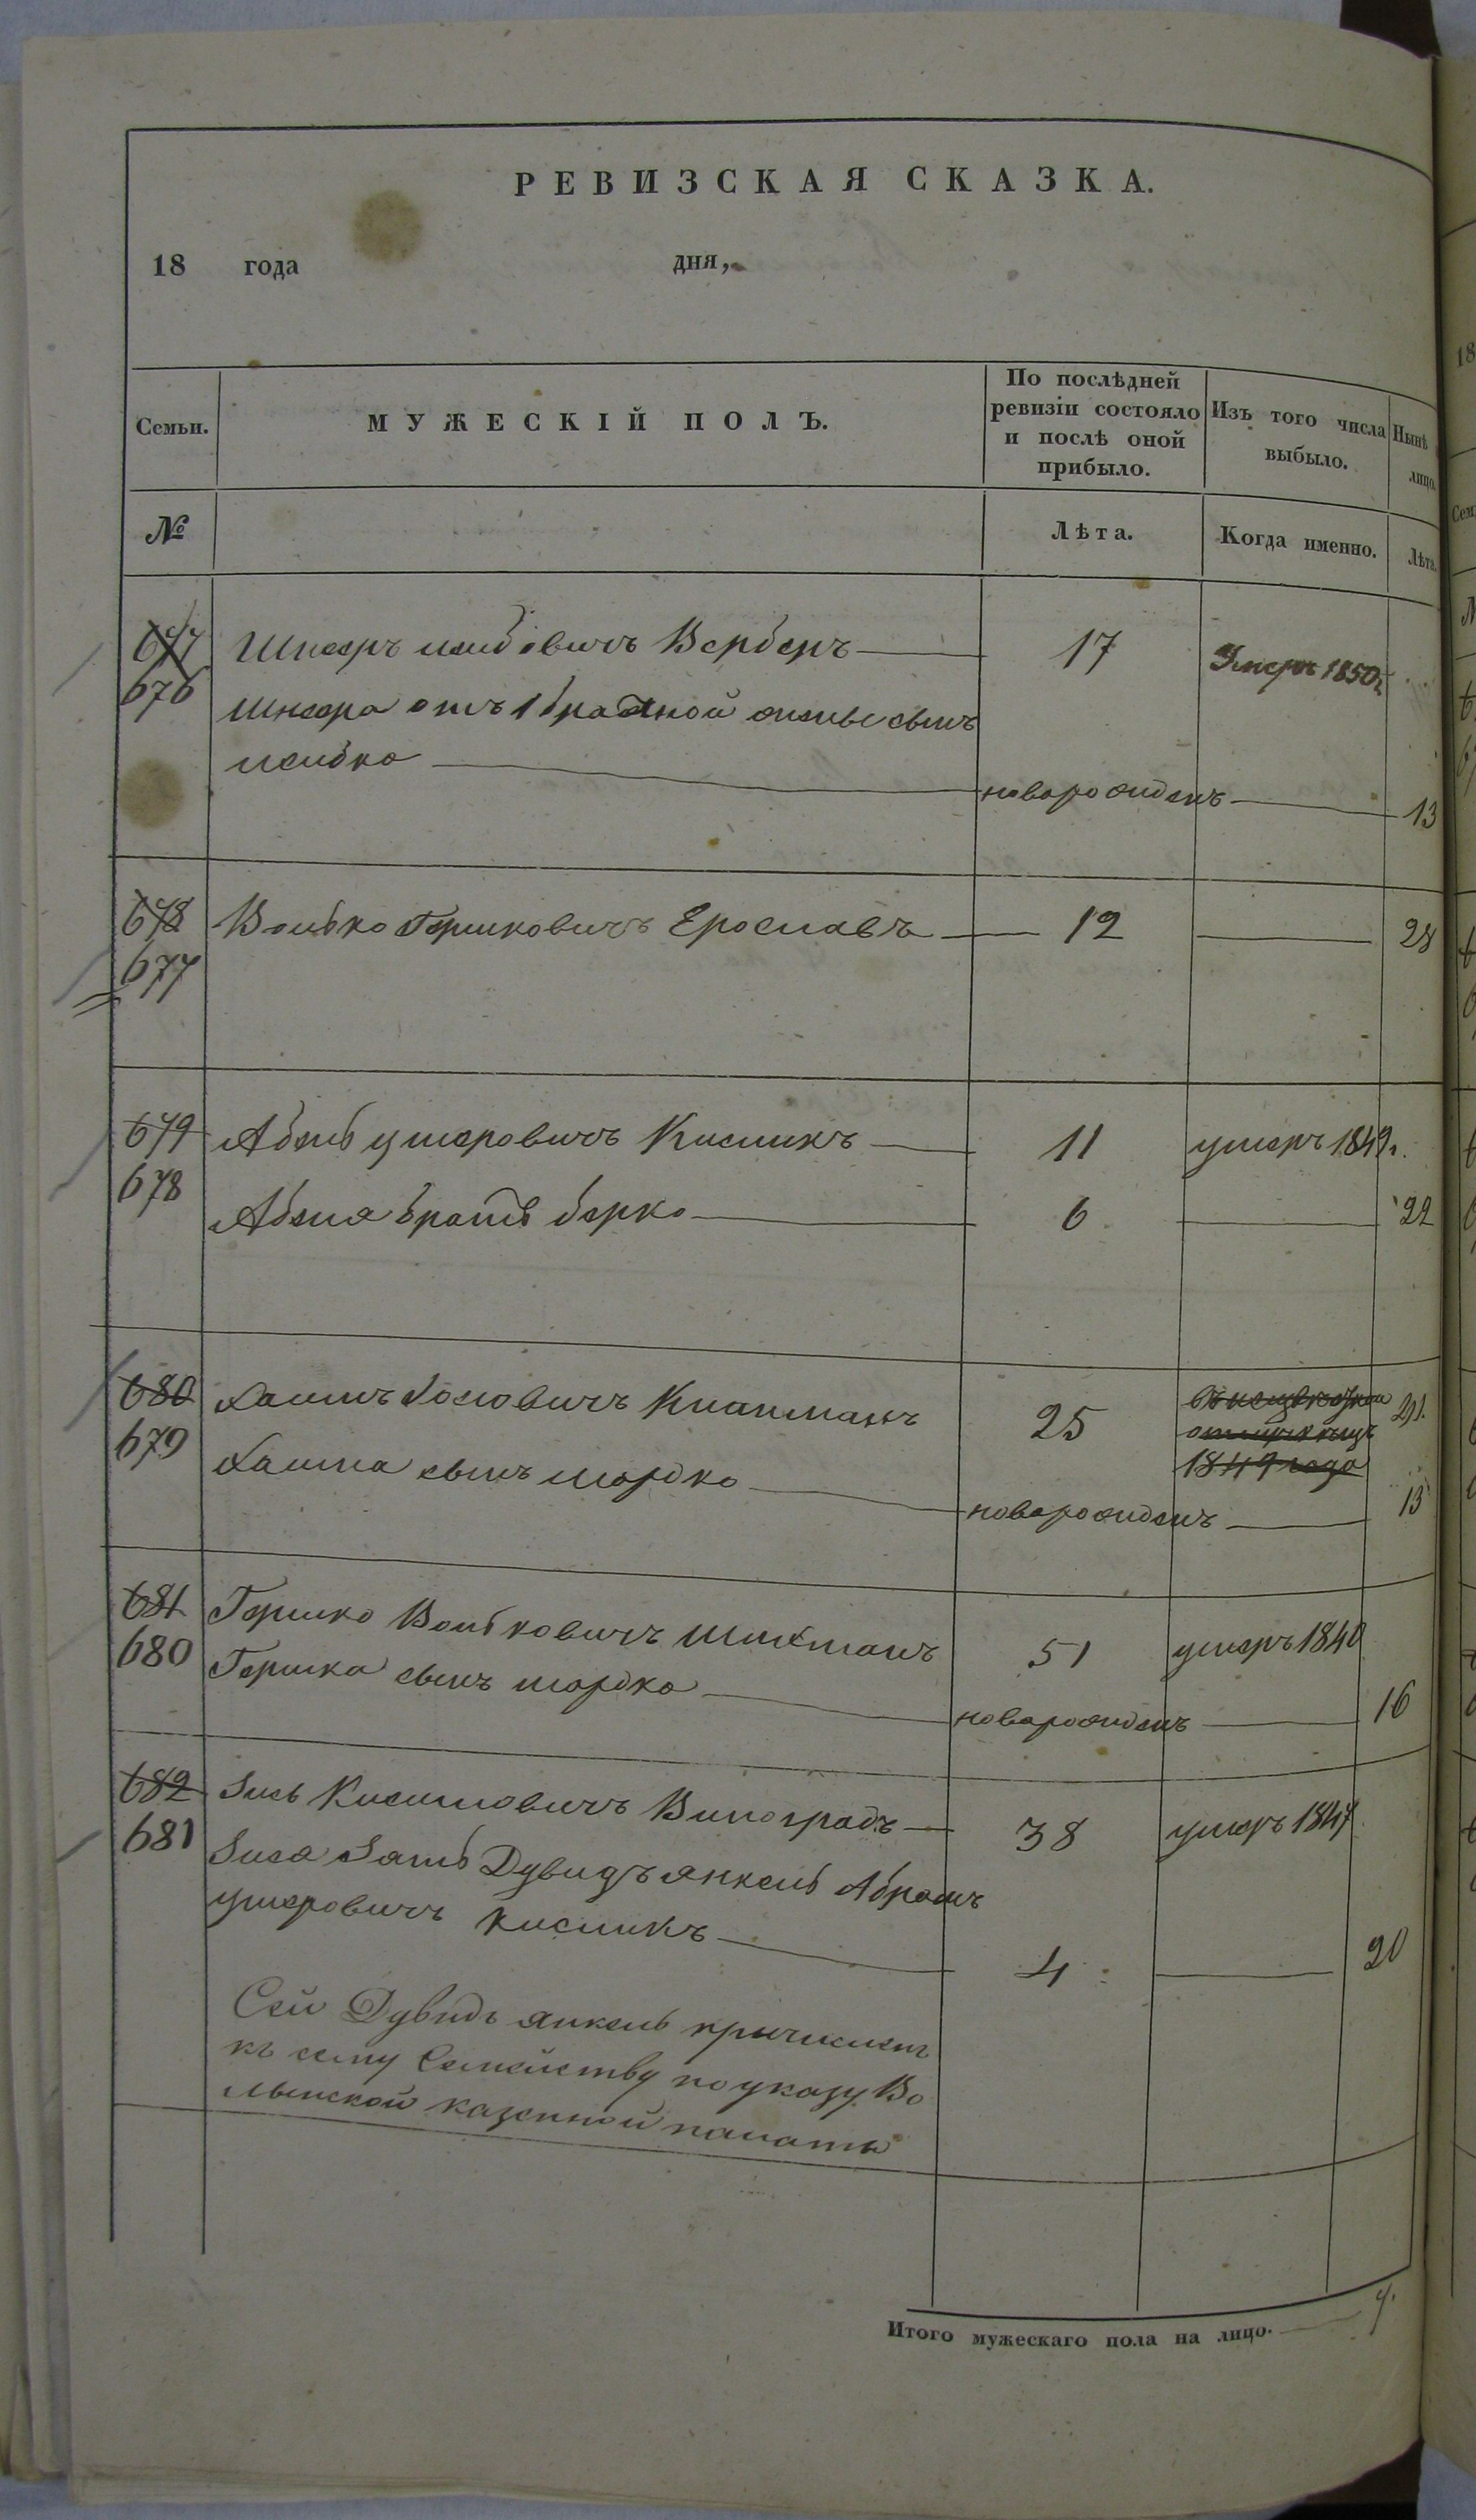 РЕВИЗСКАЯ СКАЗКА.
18 года дня,
Семьи. МУЖЕСКІЙ ПОЛЪ. По послѣдней ревизіи состояло и послѣ оной прибыло. Изъ того числа выбыло. Нынѣ лицо.
№ Лѣта. Когда именно. Лѣта.
677 Шнееръ Лейбовичъ Верберъ 17 Умеръ 1850 г.
676 Шнеера отъ 1 брачной жены сынъ
Лейбко новорожденъ 13
678 Волько Гершковичъ Ерославъ 12 28
677
679 Абель Умеровичъ Кисликъ 11 умеръ 1849 г.
678 Абеля братъ Берко 6 22
680 Хаимъ Иосіовичъ Клапманъ 25
1849 года
679 Хаима сынъ Мордко новорожденъ 13
681 Гершко Вольковичъ 51 умеръ 1840
680 Гершка сынъ Мордко новорожденъ 16
682 Зись Виноградъ 38 умеръ 1847
681 Зися Зять Дувидъ Янкель Абрамъ
Умеровичъ Кисликъ 4 20
Сей Дувидъ Янкель причисленъ
къ сему Семейству по указу Во
лынской казенной палаты
Итого мужескаго пола на лицо. 7.